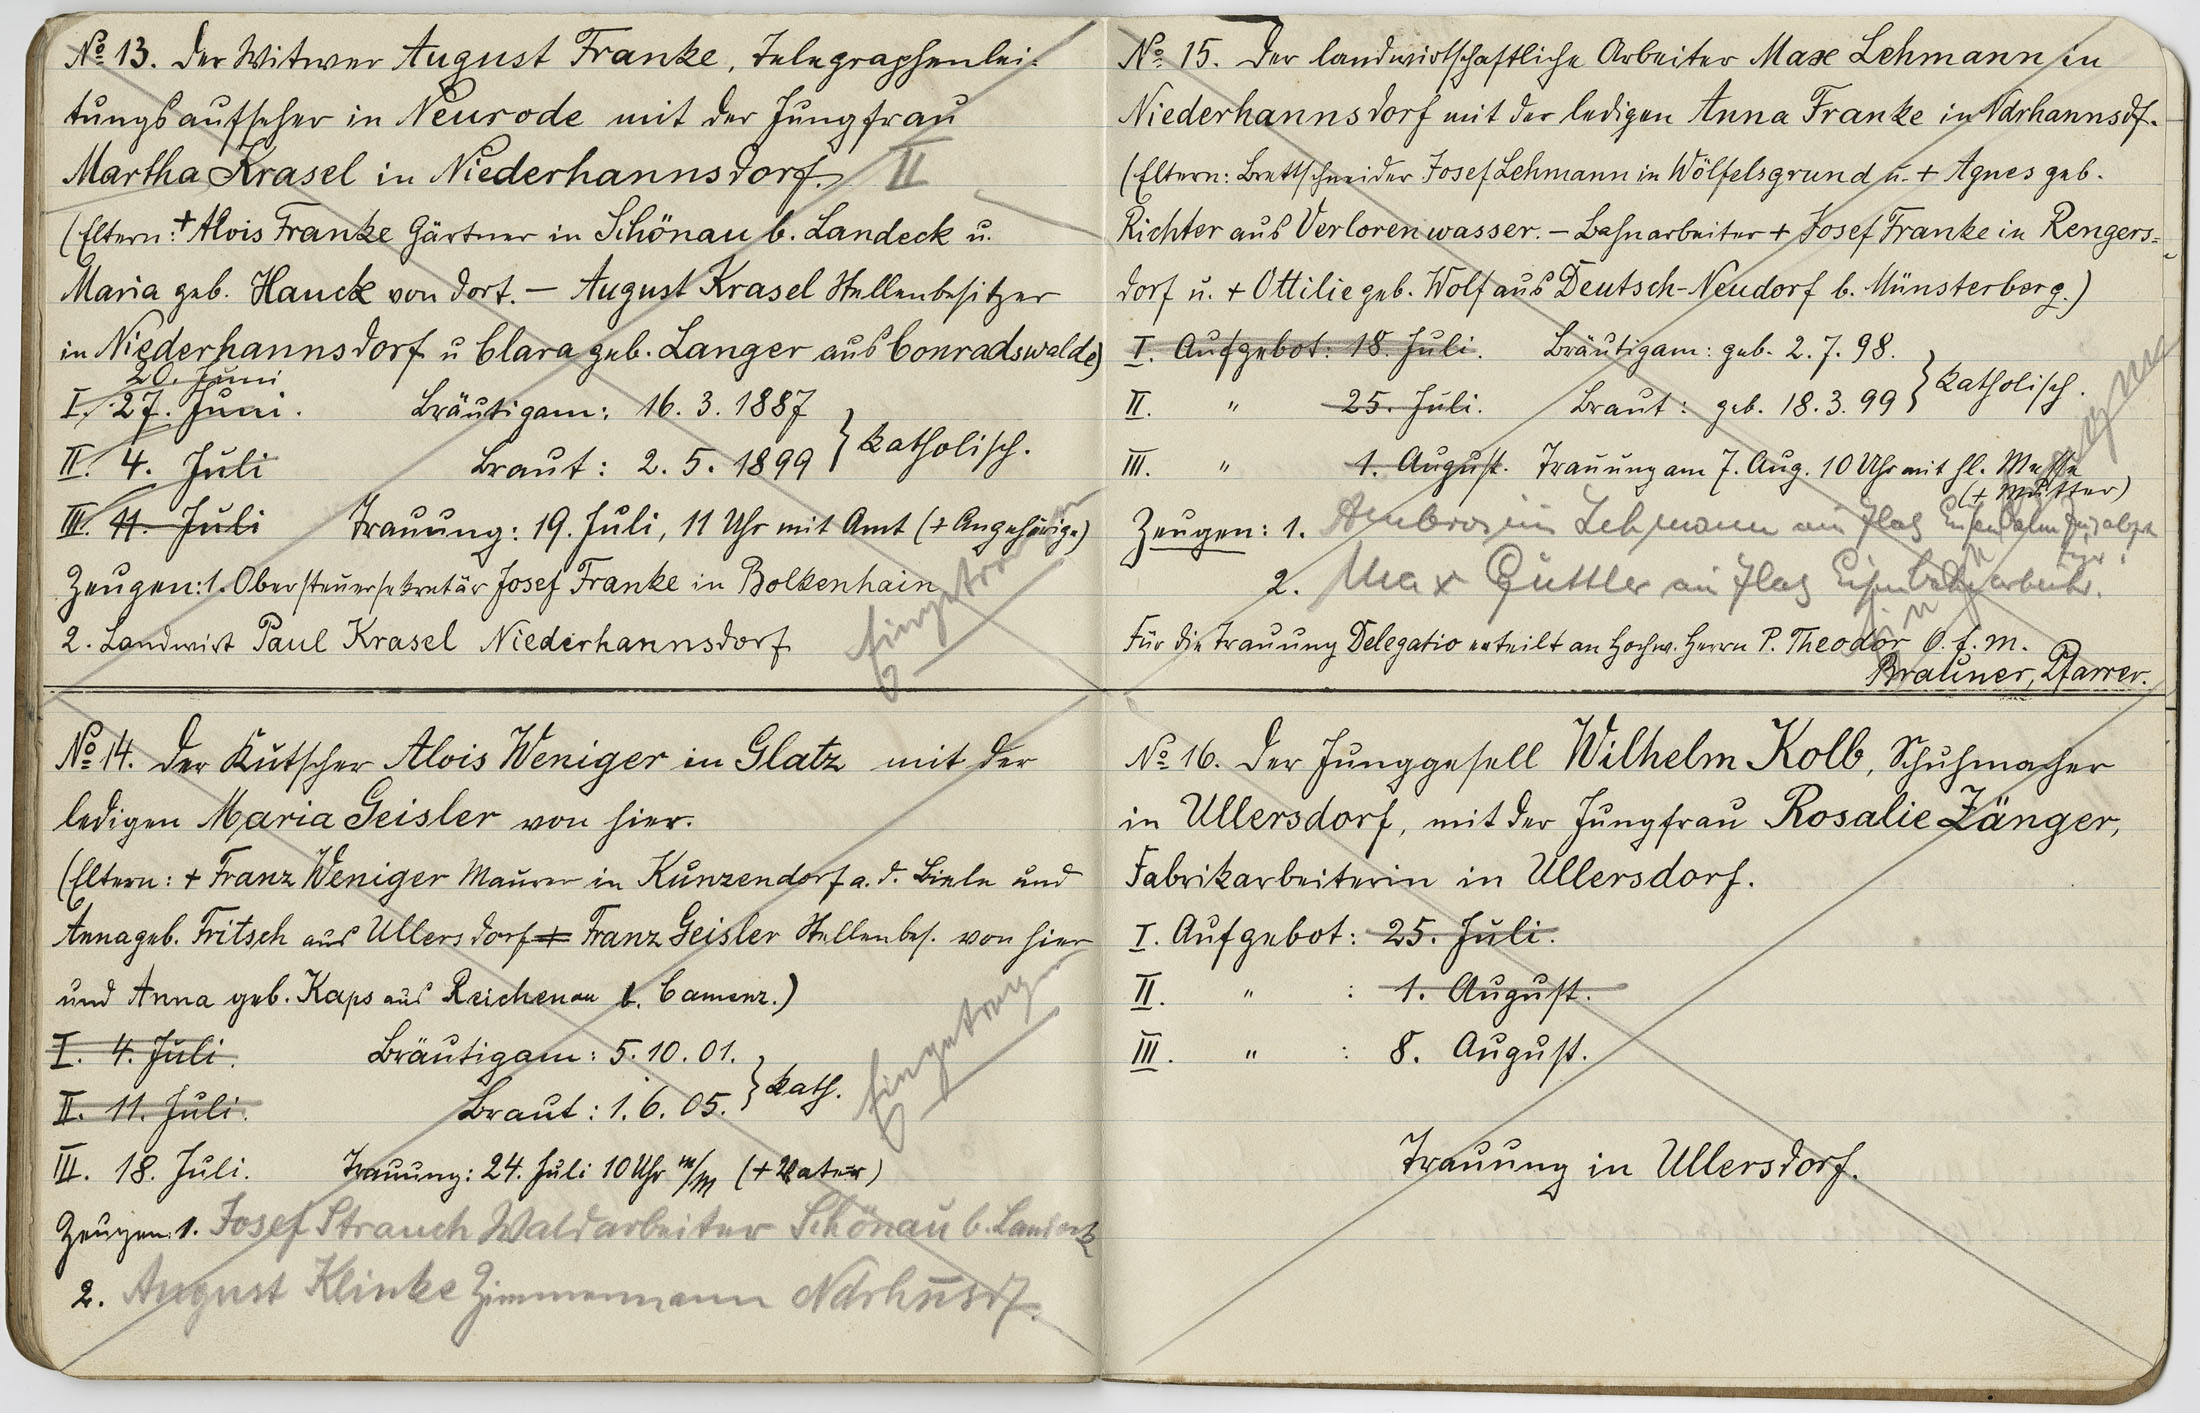 No 13. Der Witwer August Franke, Telegraphenlei-
tungsaufseher in Neurode mit der Jungfrau
Martha Krasel in Niederhannsdorf. II
(Eltern: + Alois Franke Gärtner in Schönau b. Landeck u.
Maria geb. Hauck von dort. – August Krasel Stellenbesitzer
in Niederhannsdorf u Clara geb. Langer aus Conradswalde)
20. Juni
I. 27. Juni. Bräutigam: 16. 3. 1887
II. 4. Juli Braut: 2. 5. 1899 } katholisch.
III. 11. Juli Trauung: 19. Juli, 11 Uhr mit Amt (+ Angehörige)
Zeugen: 1. Obersteuersekretär Josef Franke in Bolkenhain
2. Landwirt Paul Krasel Niederhannsdorf
Eingetragen
No 14. Der Kutscher Alois Weniger in Glatz mit der
ledigen Maria Geisler von hier.
(Eltern: + Franz Weniger Maurer in Kunzendorf a. d. Biele und
Anna geb. Fritsch aus Ullersdorf + Franz Geisler Stellenbes. von hier
und Anna geb. Kaps aus Reichenau b. Camenz.)
I. 4. Juli. Bräutigam: 5. 10. 01.
II. 11. Juli. Braut: 1. 6. 05. } kath.
III. 18. Juli. Trauung: 24. Juli 10 Uhr m/M (+ Vater)
Zeugen: 1. Josef Strauch Waldarbeiter Schönau b. Landeck
2. August Klinke Zimmermann Ndrhnsdf.
Eingetragen
No 15. Der landwirtschaftliche Arbeiter Max Lehmann in
Niederhannsdorf mit der ledigen Anna Franke in Ndrhannsdf.
(Eltern: Brettschneider Josef Lehmann in Wölfelsgrund u. + Agnes geb.
Richter aus Verlorenwasser. – Bahnarbeiter + Josef Franke in Rengers-
dorf u. + Ottilie geb. Wolf aus Deutsch-Neudorf b. Münsterberg.)
I. Aufgebot: 18. Juli. Bräutigam: geb. 2. 7. 98.
II. " 25. Juli. Braut: geb. 18. 3. 99 } katholisch.
III. " 1. August. Trauung am 7. Aug. 10 Uhr mit hl. Messe
(+ Mutter)
Zeugen: 1. Lehmann
2. Max Güttler Eisenbahnarbeiter.
Für die Trauung Delegatio erteilt an Hochw. Herrn P. Theodor O. f. m.
Brauner, Pfarrer.
No 16. Der Junggesell Wilhelm Kolb, Schuhmacher
in Ullersdorf, mit der Jungfrau Rosalie Zänger,
Fabrikarbeiterin in Ullersdorf.
I. Aufgebot: 25. Juli.
II. " : 1. August.
III. " : 8. August.
Trauung in Ullersdorf.